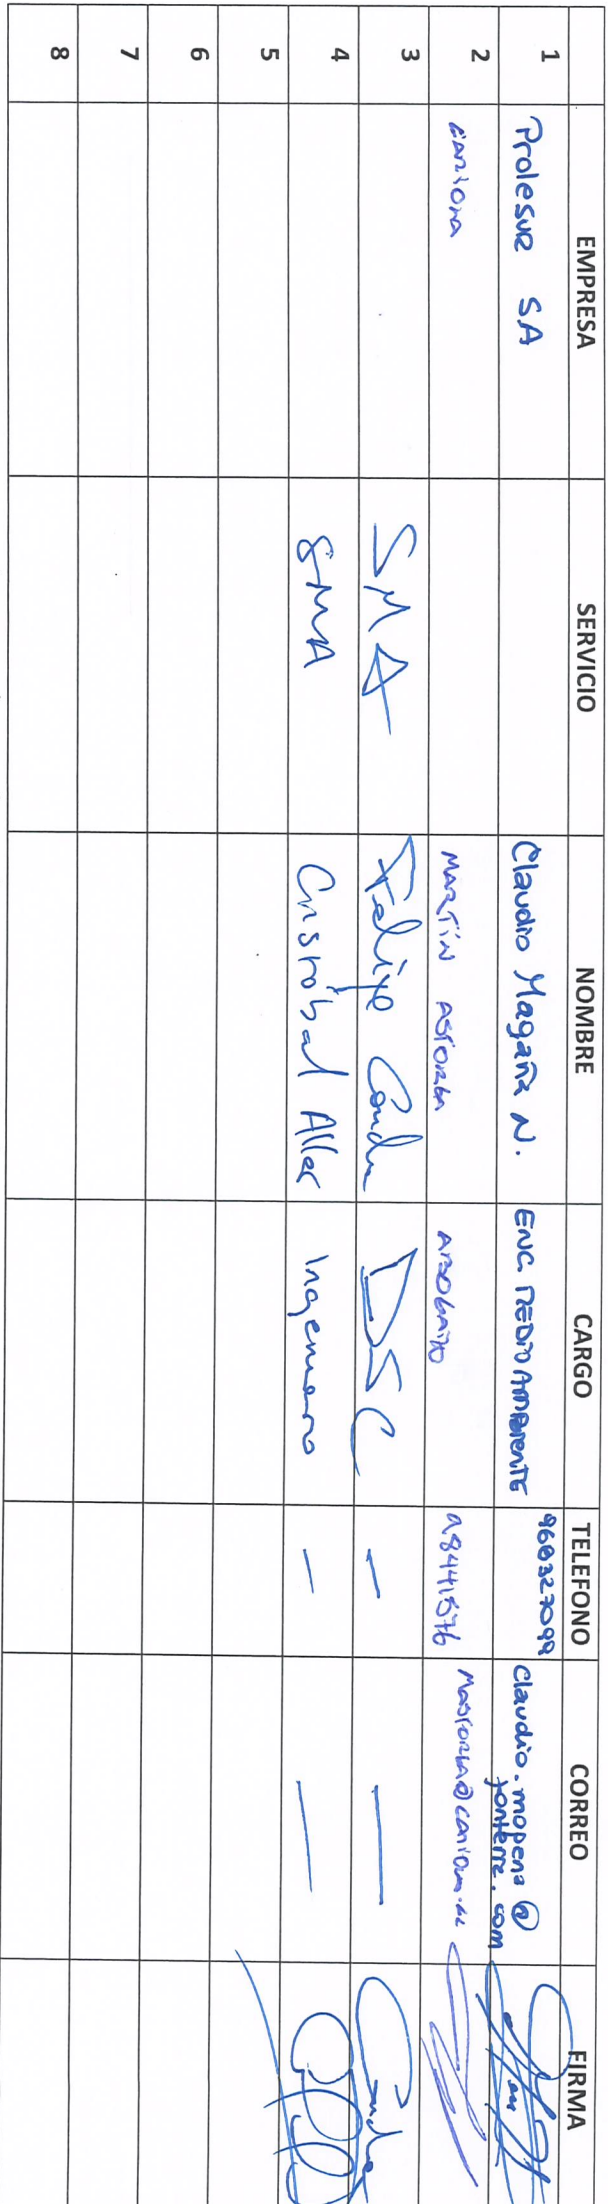 EMPRESA SERVICIO NOMBRE CARGO TELEFONO CORREO FIRMA
1 Prolesur SA Claudio Magaña N. ENC. MEDIO AMBIENTE 968327099 claudio.mopena@
fonterra.com
2 MARTÍN ASTORGA ABOGADO 98441576
3 SMA Felipe DSC — —
4 SMA Cristóbal Aller Ingeniero — —
5
6
7
8